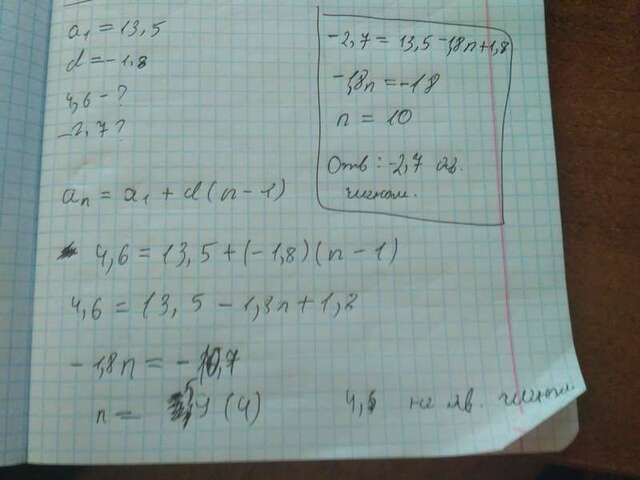 a₁ = 13,5
d = -1.8
4,6 - ?
-2,7 ?
aₙ = a₁ + d(n - 1)
4,6 = 13,5 + (-1,8)(n - 1)
4,6 = 13,5 - 1,8n + 1,2
-1,8n = -10,7
n = 9(4)
4,6 не яв. членом.
-2,7 = 13,5 - 1,8n + 1,8
-1,8n = -18
n = 10
Отв: -2,7 яв.
членом.